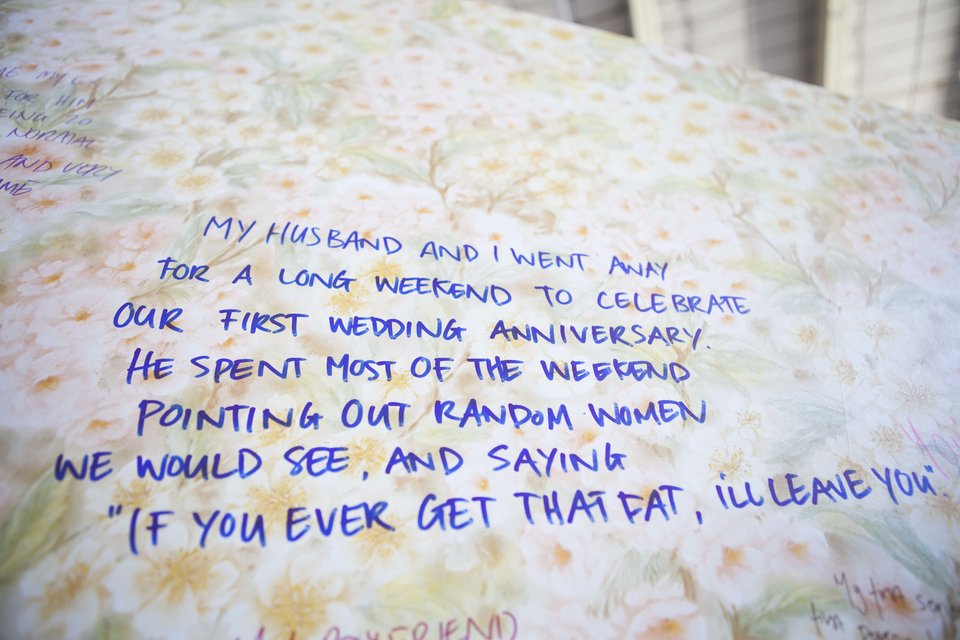 FOR HIM
NORMAL
AND VERY
MY HUSBAND AND I WENT AWAY
FOR A LONG WEEKEND TO CELEBRATE
OUR FIRST WEDDING ANNIVERSARY.
HE SPENT MOST OF THE WEEKEND
POINTING OUT RANDOM WOMEN
WE WOULD SEE, AND SAYING
"IF YOU EVER GET THAT FAT, iLL LEAVE YOU".
My
BOYFRIEND